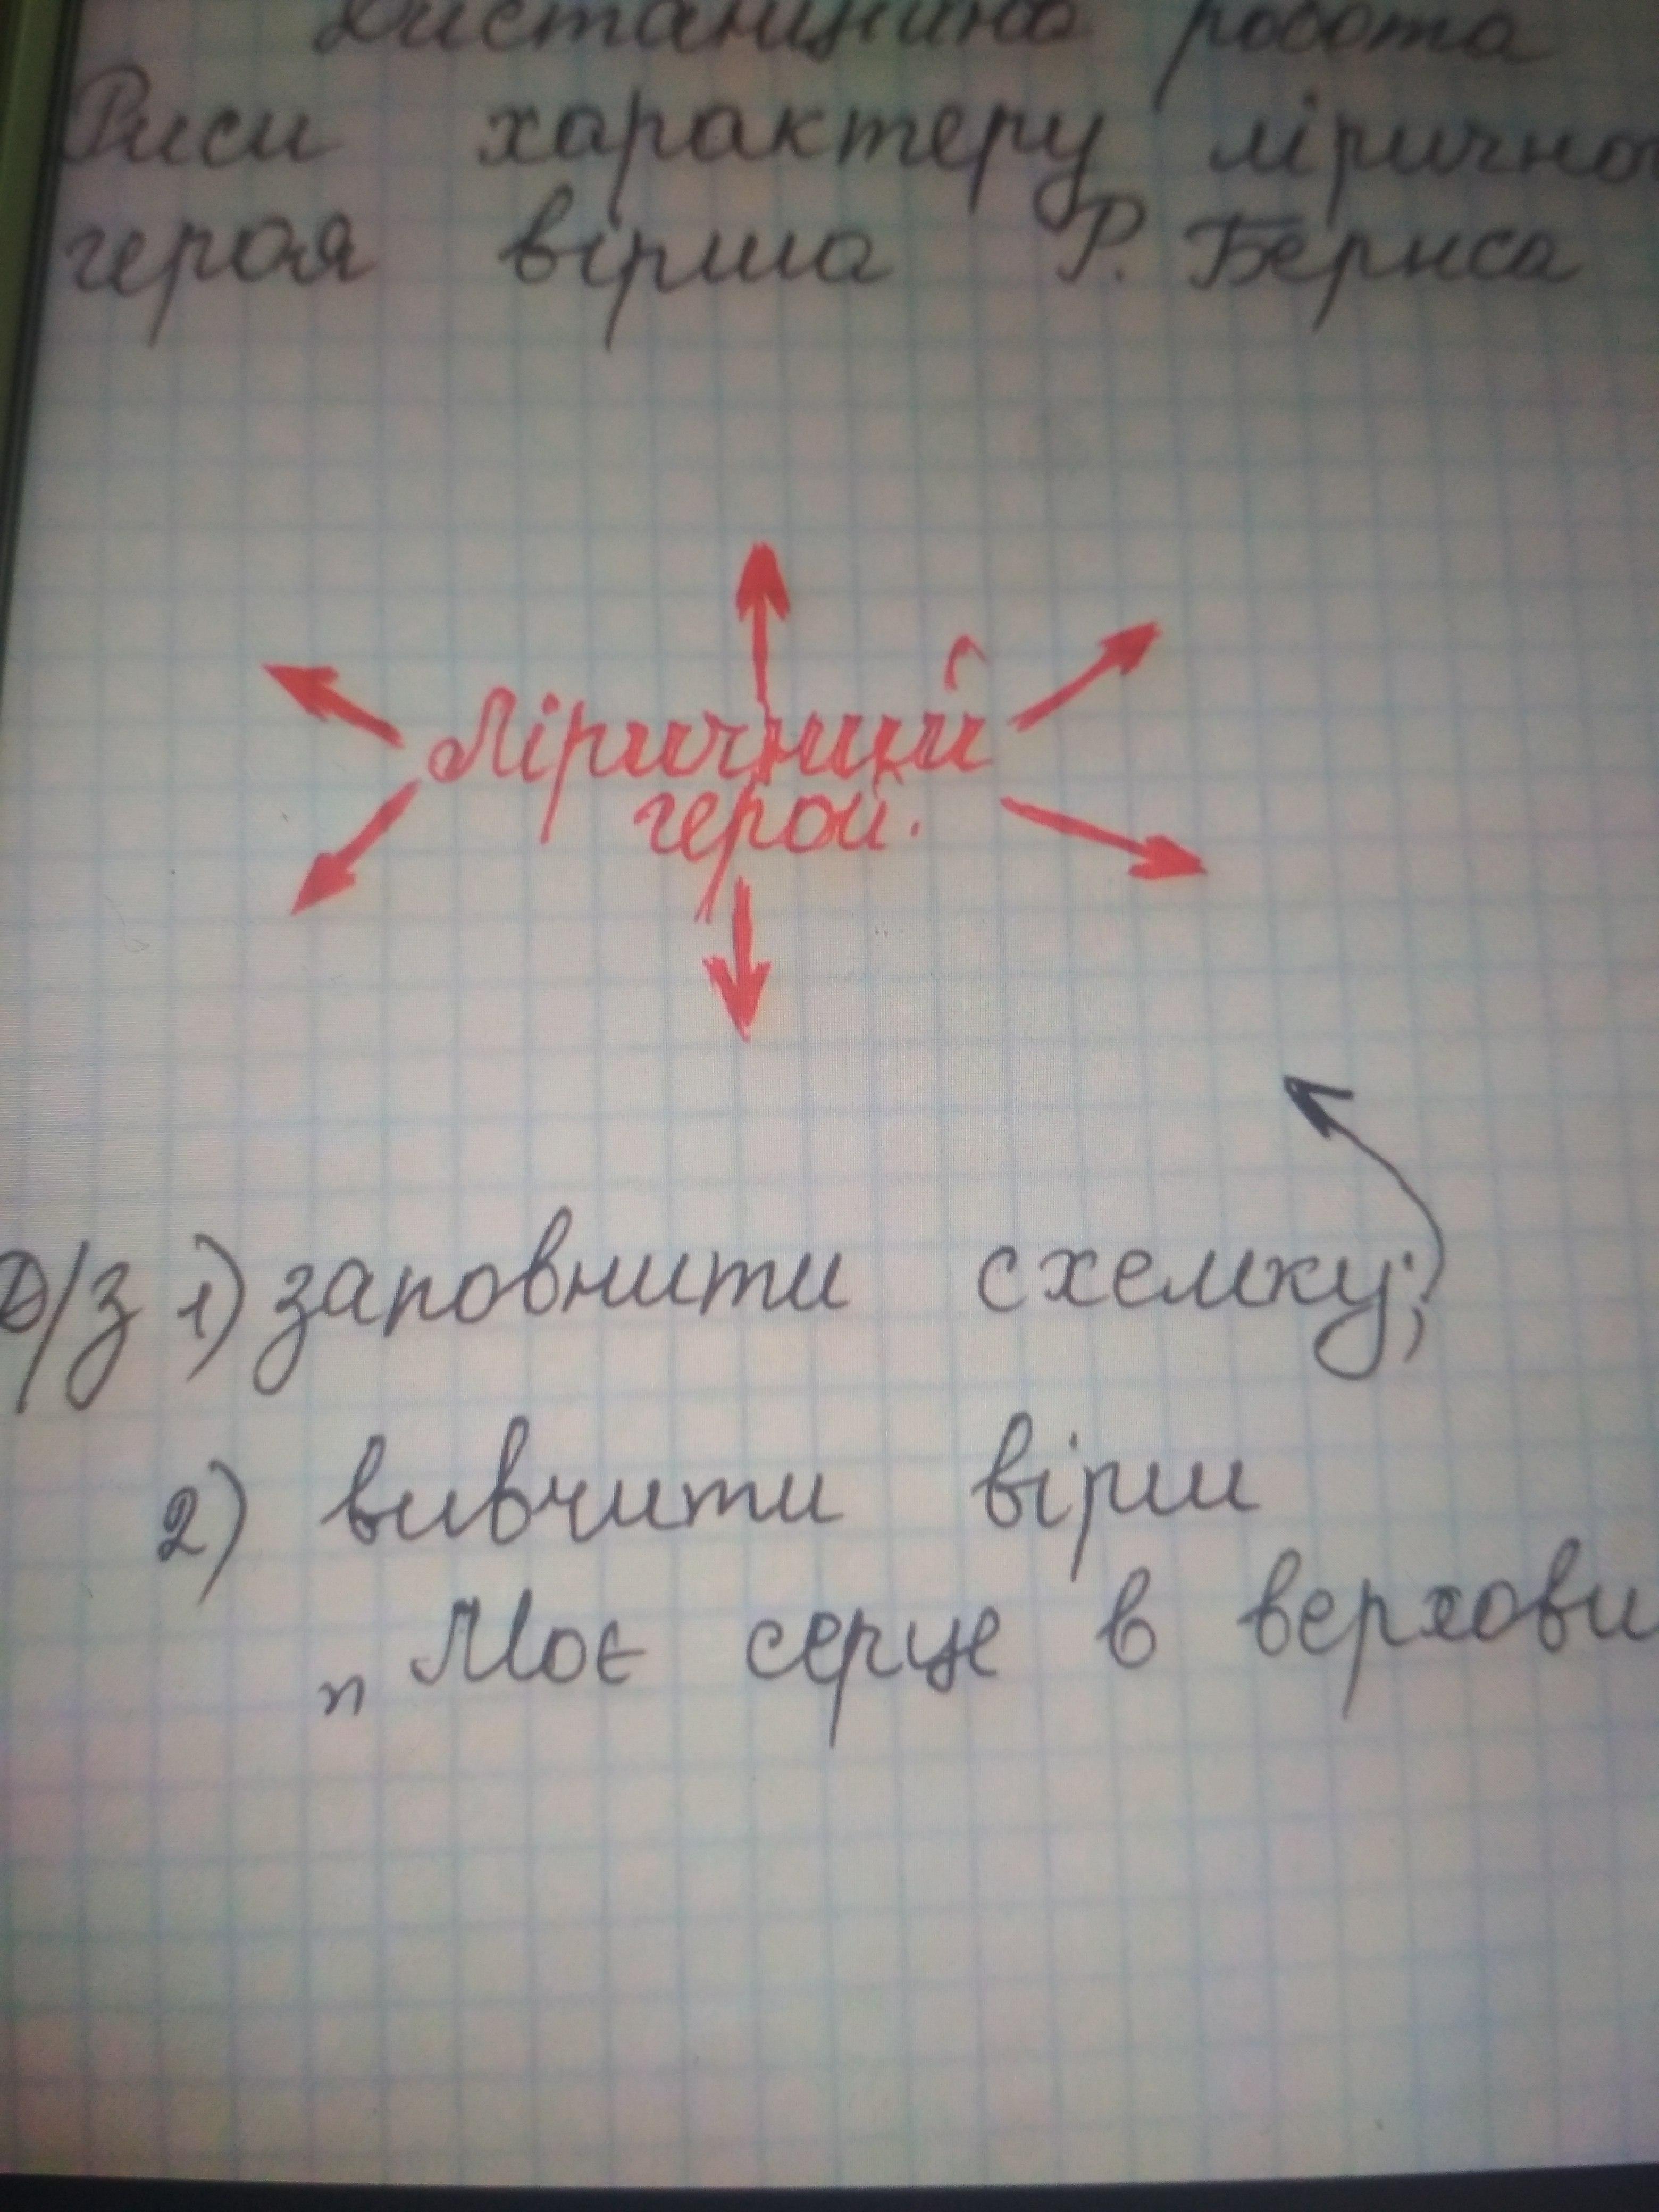 Дистанційна робота
Риси характеру лірично
героя вірша Р. Бернса
Ліричний
герой.
Д/З 1) заповнити схемку;
2) вивчити вірш
„Моє серце в верхови